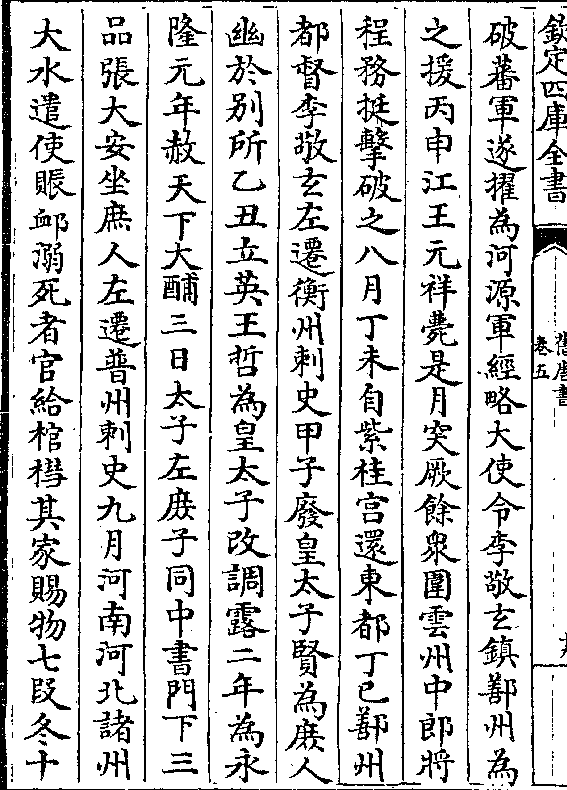 欽定四庫全書
舊唐書
卷五
破蕃軍遂擢為河源軍經略大使令李敬玄鎮鄯州為
之援丙申江王元祥薨是月突厥餘衆圍雲州中郎將
程務挺擊破之八月丁未自紫桂宮還東都丁巳鄯州
都督李敬玄左遷衡州刺史甲子廢皇太子賢為庶人
幽於別所乙丑立英王哲為皇太子改調露二年為永
隆元年赦天下大酺三日太子左庻子同中書門下三
品張大安坐庶人左遷普州刺史九月河南河北諸州
大水遣使賑䘏溺死者官給棺槥其家賜物七段冬十